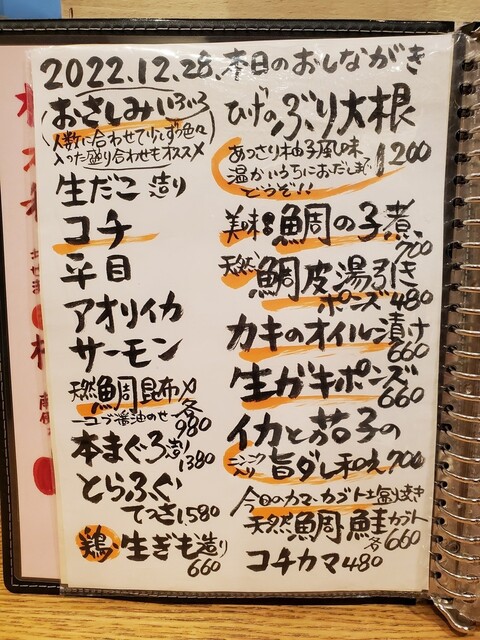 2022.12.28. 本日のおしながき
おさしみいろいろ
人数に合わせて少しずつ色々
入った盛り合わせもオススメ
生だこ造り
コチ
平目
アオリイカ
サーモン
天然鯛昆布〆
ーコブ醤油のせ 各980
本まぐろ造り 1380
とらふぐ
てっさ1,580
鶏、生ぎも造り
660
ひげのぶり大根
あっさり柚子風味 1200
温かいうちにおだしまで
どうぞ!!
美味 鯛の子煮 700
天然 鯛皮湯引き
ポンズ480
カキのオイル漬け
660
生ガキポンズ
660
イカと茄子の
ニンニク入り 旨ダレ和え 700
今日のカマ・カブト土塩り焼き
天然鯛・鮭カブト
各660
コチカマ480